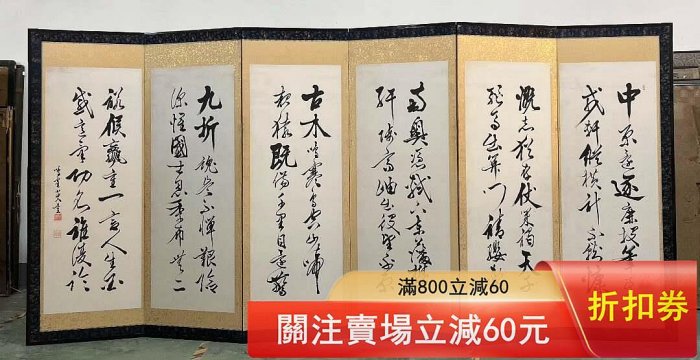 中原還逐鹿投筆
戎軒縱橫計不就慷
慨志猶存仗策謁天子
驅馬出關門請纓
南粵憑軾下東藩
紆陟高岫出沒望平
古木吟寒鳥空山啼
夜猿既傷千里目還驚
九折魂豈不憚艱險
深懷國士恩季布無二
諾侯嬴重一言人生
感意氣功名誰復論
滿800立減60
關注賣場立減60元
折扣券